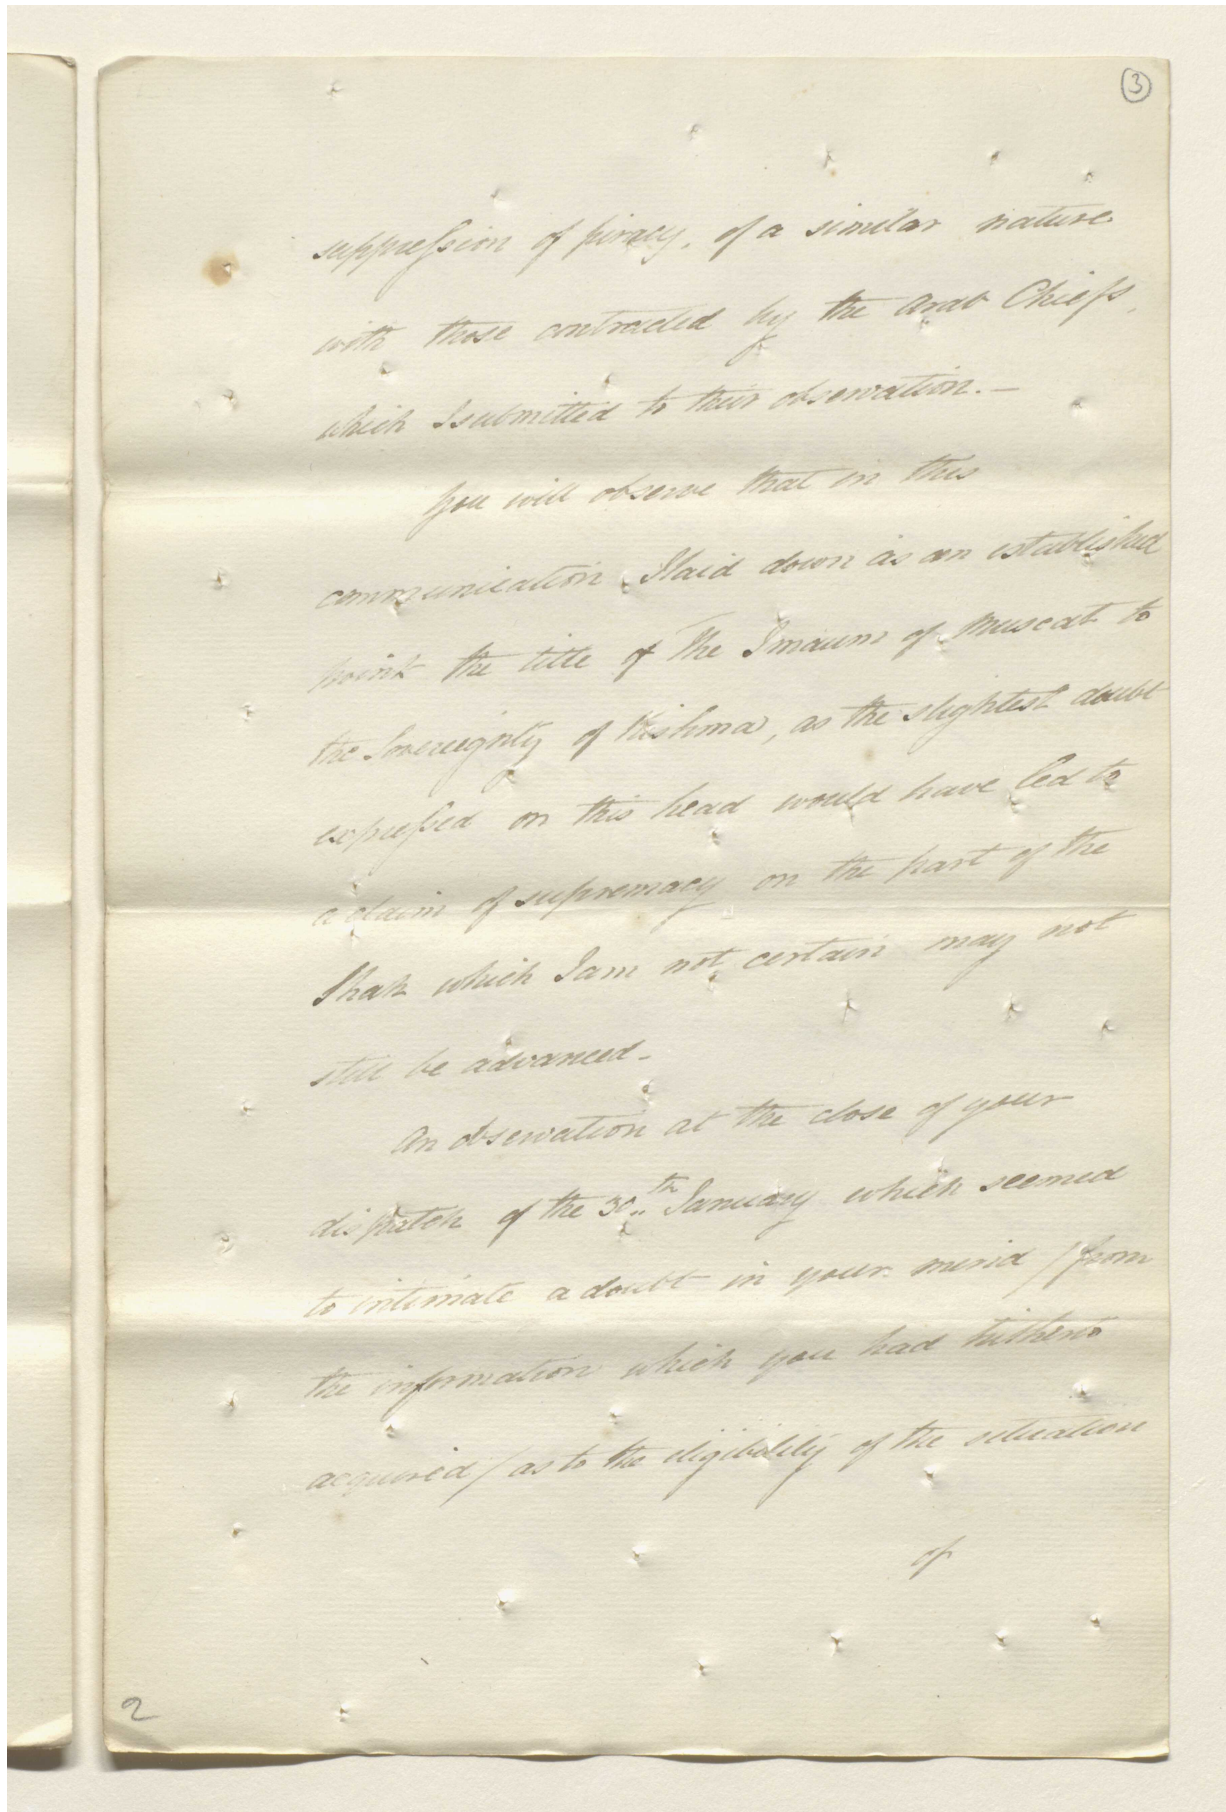 3
suppression of piracy, of a similar nature
with those contracted by the Arab Chiefs,
which I submitted to their observation. —
You will observe that in this
communication I laid down as an established
point the title of The Imaum of Muscat to
the Sovereignty of Kishma, as the slightest doubt
expressed on this head would have led to
a claim of supremacy on the part of the
Shah which I am not certain may not
still be advanced –
An observation at the close of your
dispatch of the 30th January which seemed
to intimate a doubt in your mind / from
the information which you had hitherto
acquired / as to the eligibility of the situation
of
2